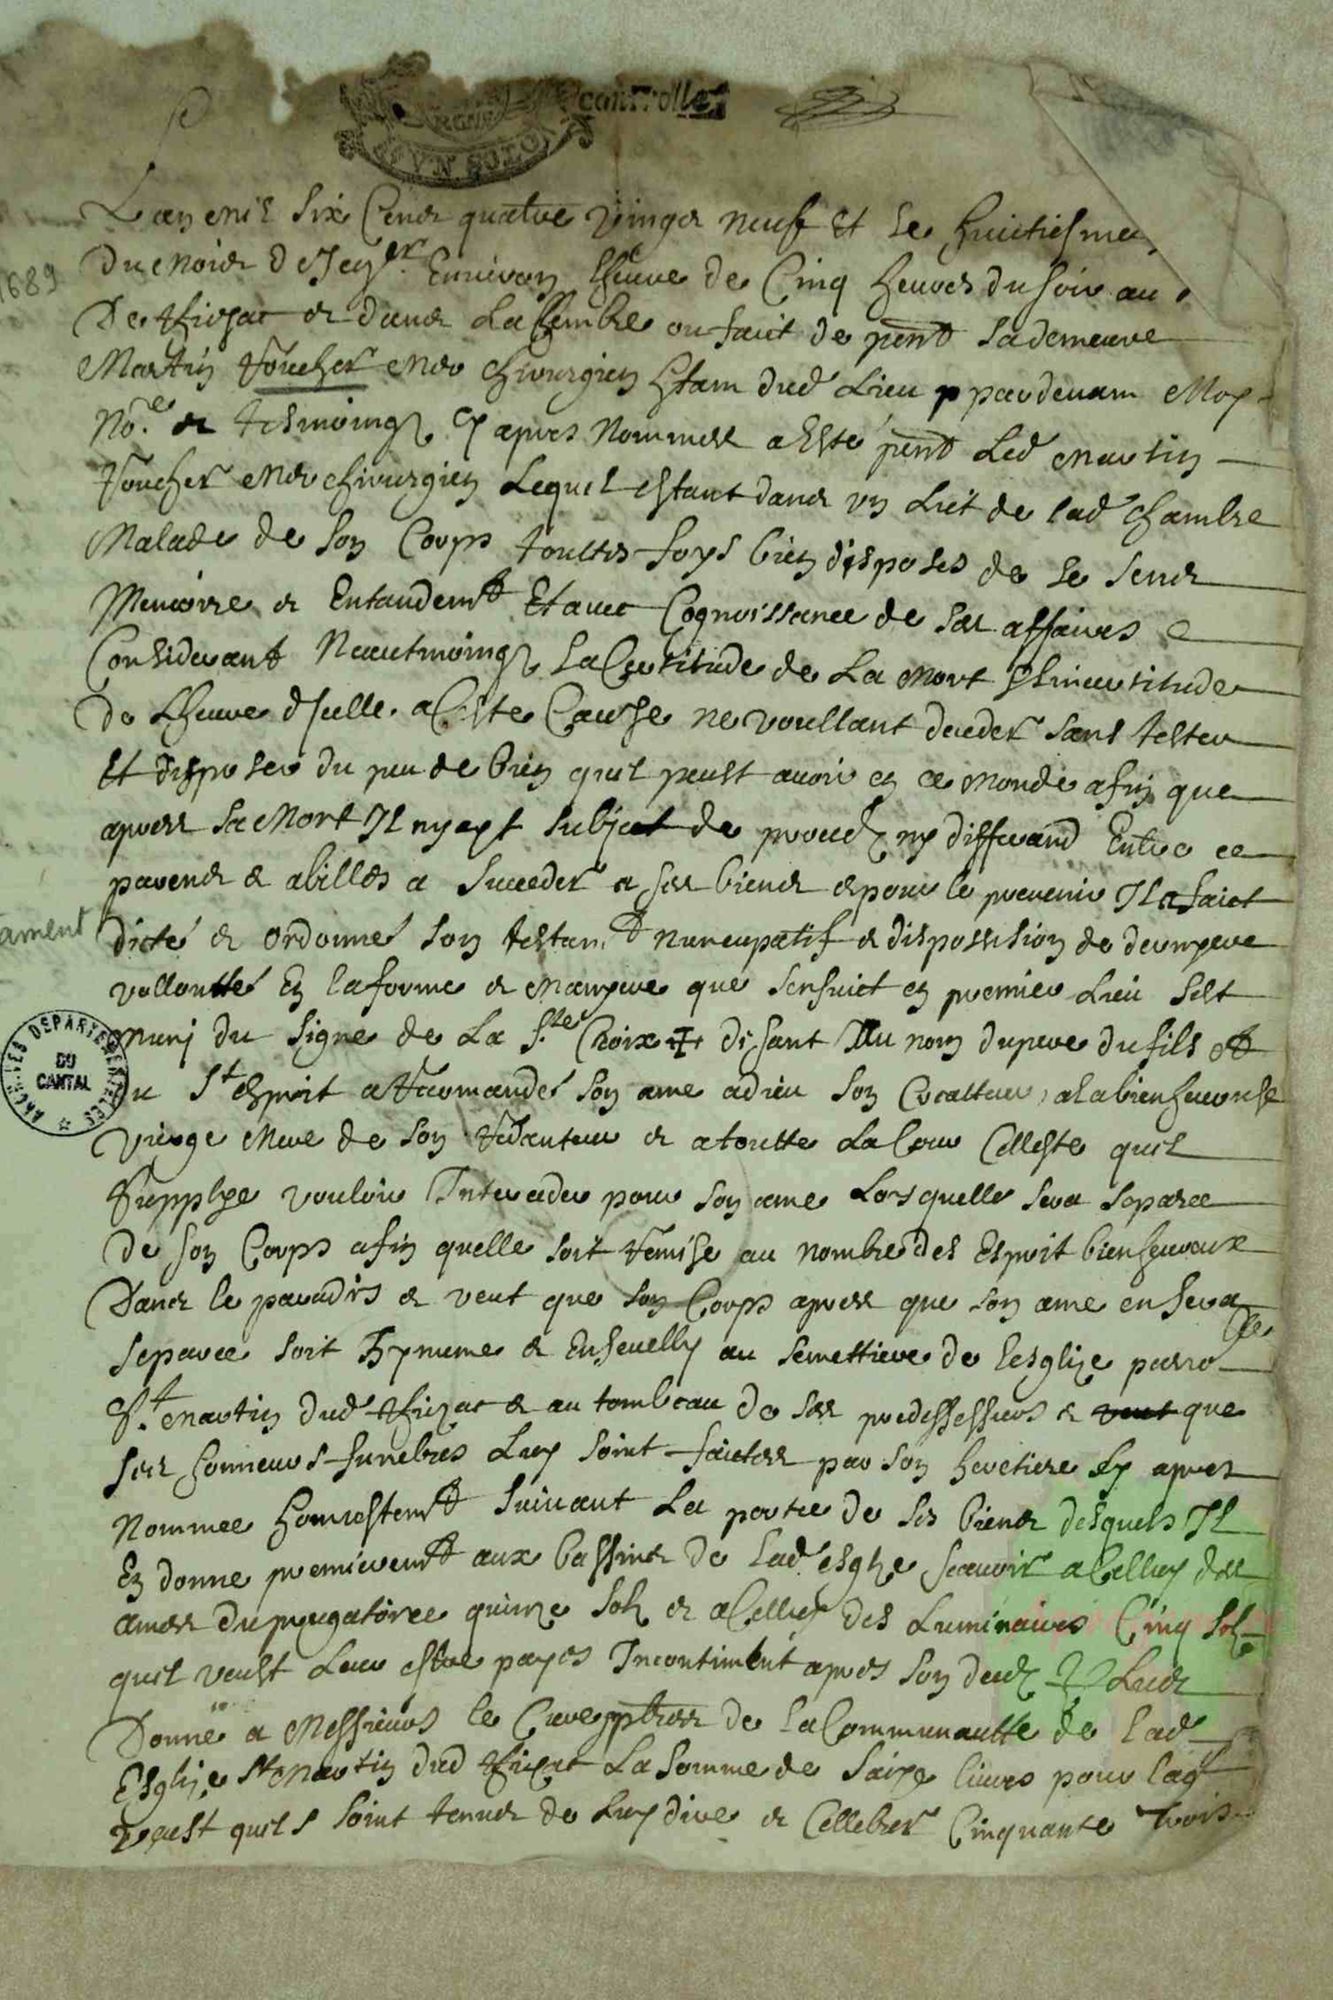 controlle
VN SOL
L an mil six Cens quatre vingts neuf Et le huictiesme
1689
Du mois de Jer Environ lheure de Cinq heures du soir au
De Thiezac et dans La Chambre ou faict de pnt sa demeure
Martin Toucher Me chirurgien htant dud Lieu pardevant Moy
No.re et tesmoings Cy apres Nommes a Esté pnt Led Martin
Toucher Me chirurgien Lequel estant dans un Lict de lad chambre
Malade de son Corps touttes foys bien disposes de se sens
Memoire et Entandemt Et avec Cognoissance de ses affaires
Considerant Neantmoings La Certitude de La Mort Lincertitude
De Lheure dicelle. a Ceste Cause ne voullant deceder sans tester
Et disposer du peu de bien quil peust avoir en ce monde afin que
apres sa Mort Il ny ayt subject de proces ny differand Entre ce
parens et abilles a succeder a ses biens et pour le prevenir Il a faict
ament
dicté et ordonné son testamt nuncupatif et disposision de dernyere
vollontté En la forme et manyere que sensuict en premier Lieu sest
muni du signe de La Ste Croix ✝ disant Au nom du pere du fils et
ARCHIVES DEPARTEMENTALES DU CANTAL
du St esprit a Recomandé son ame a dieu son Createur, a la bienheureuse
Vierge Mere de son Redanteur et a toutte La Cour Celleste quil
supplye vouloir Interceder pour son ame Lors quelle sera separee
De son Corps afin quelle soit Remise au nombre des Esprit bienheureux
Dans le paradis et veut que son Corps apres que son ame en sera
separee soit Inhume et Ensevelly au semettiere de lesglize parrolle
St martin dud Thiezac et au tombeau de ses predessesseurs et veut que
ses honneurs funebres Luy soint faictes par son heretiere Cy apres
Nommee honnestemt suivant La portee de ses biens desquels Il
En donne premieremt aux bassins de lad esglze scavoir a Celluy des
ames du purgatoire quinze solz et a Celluy des Luminaires Cinq solz
quil veust Leur estre payes Incontinent apres son deces Plus
Donne a Messieurs le Cure pbtres de la Communautte de lad
Esglize St Martin dud Thiezac La somme de saize livres pour laqlle
veust quils soint tenus de Luy dire et Cellebrer Cinquante trois